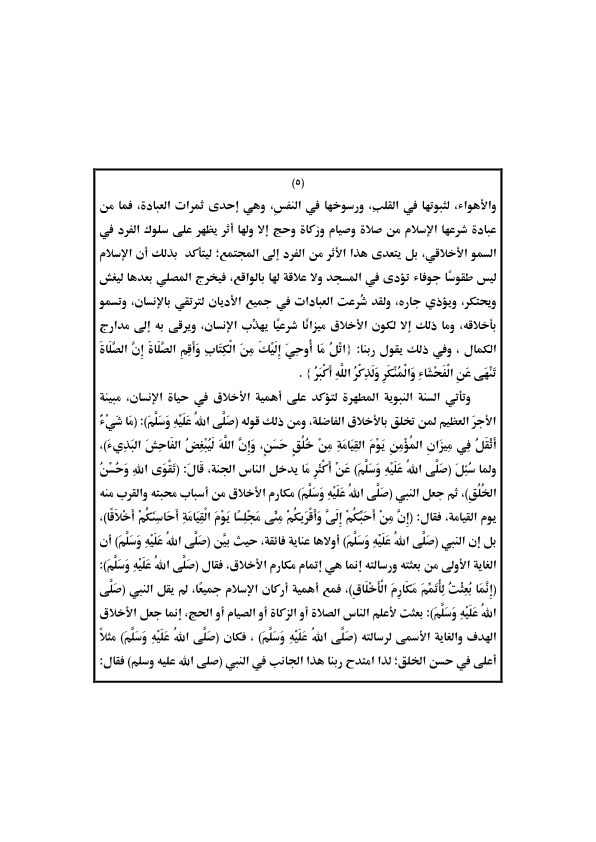 (٥)
والأهواء، لثبوتها في القلب، ورسوخها في النفس، وهي إحدى ثمرات العبادة، فما من
عبادة شرعها الإسلام من صلاة وصيام وزكاة وحج إلا ولها أثر يظهر على سلوك الفرد في
السمو الأخلاقي، بل يتعدى هذا الأثر من الفرد إلى المجتمع؛ ليتأكد بذلك أن الإسلام
ليس طقوسًا جوفاء تؤدى في المسجد ولا علاقة لها بالواقع، فيخرج المصلي بعدها ليغش
ويحتكر، ويؤذي جاره، ولقد شُرعت العبادات في جميع الأديان لترتقي بالإنسان، وتسمو
بأخلاقه، وما ذلك إلا لكون الأخلاق ميزانًا شرعيًا يهذّب الإنسان، ويرقى به إلى مدارج
الكمال ، وفي ذلك يقول ربنا: {اتْلُ مَا أُوحِيَ إِلَيْكَ مِنَ الْكِتَابِ وَأَقِمِ الصَّلَاةَ إِنَّ الصَّلَاةَ
تَنْهَى عَنِ الْفَحْشَاءِ وَالْمُنْكَرِ وَلَذِكْرُ اللَّهِ أَكْبَرُ } .
وتأتي السنة النبوية المطهرة لتؤكد على أهمية الأخلاق في حياة الإنسان، مبينة
الأجرَ العظيم لمن تخلق بالأخلاق الفاضلة، ومن ذلك قوله (صَلَّى اللهُ عَلَيْهِ وَسَلَّمَ): (مَا شَيْءٌ
أَثْقَلُ فِي مِيزَانِ المُؤْمِنِ يَوْمَ القِيَامَةِ مِنْ خُلُقٍ حَسَنٍ، وَإِنَّ اللَّهَ لَيُبْغِضُ الفَاحِشَ البَذِيءَ)،
ولما سُئِلَ (صَلَّى اللهُ عَلَيْهِ وَسَلَّمَ) عَنْ أَكْثَرِ مَا يدخل الناس الجنة، قَالَ: (تَقْوَى اللهِ وَحُسْنُ
الخُلُقِ)، ثم جعل النبي (صَلَّى اللهُ عَلَيْهِ وَسَلَّمَ) مكارم الأخلاق من أسباب محبته والقرب منه
يوم القيامة، فقال: (إِنَّ مِنْ أَحَبِّكُمْ إِلَيَّ وَأَقْرَبِكُمْ مِنِّى مَجْلِسًا يَوْمَ الْقِيَامَةِ أَحَاسِنَكُمْ أَخْلَاقًا)،
بل إن النبي (صَلَّى اللهُ عَلَيْهِ وَسَلَّمَ) أولاها عناية فائقة، حيث بيَّن (صَلَّى اللهُ عَلَيْهِ وَسَلَّمَ) أن
الغاية الأولى من بعثته ورسالته إنما هي إتمام مكارم الأخلاق، فقال (صَلَّى اللهُ عَلَيْهِ وَسَلَّمَ):
(إِنَّمَا بُعِثْتُ لِأُتَمِّمَ مَكَارِمَ الْأَخْلَاقِ)، فمع أهمية أركان الإسلام جميعًا، لم يقل النبي (صَلَّى
اللهُ عَلَيْهِ وَسَلَّمَ): بعثت لأعلم الناس الصلاة أو الزكاة أو الصيام أو الحج، إنما جعل الأخلاق
الهدف والغاية الأسمى لرسالته (صَلَّى اللهُ عَلَيْهِ وَسَلَّمَ) ، فكان (صَلَّى اللهُ عَلَيْهِ وَسَلَّمَ) مثلاً
أعلى في حسن الخلق؛ لذا امتدح ربنا هذا الجانب في النبي (صلى الله عليه وسلم) فقال: